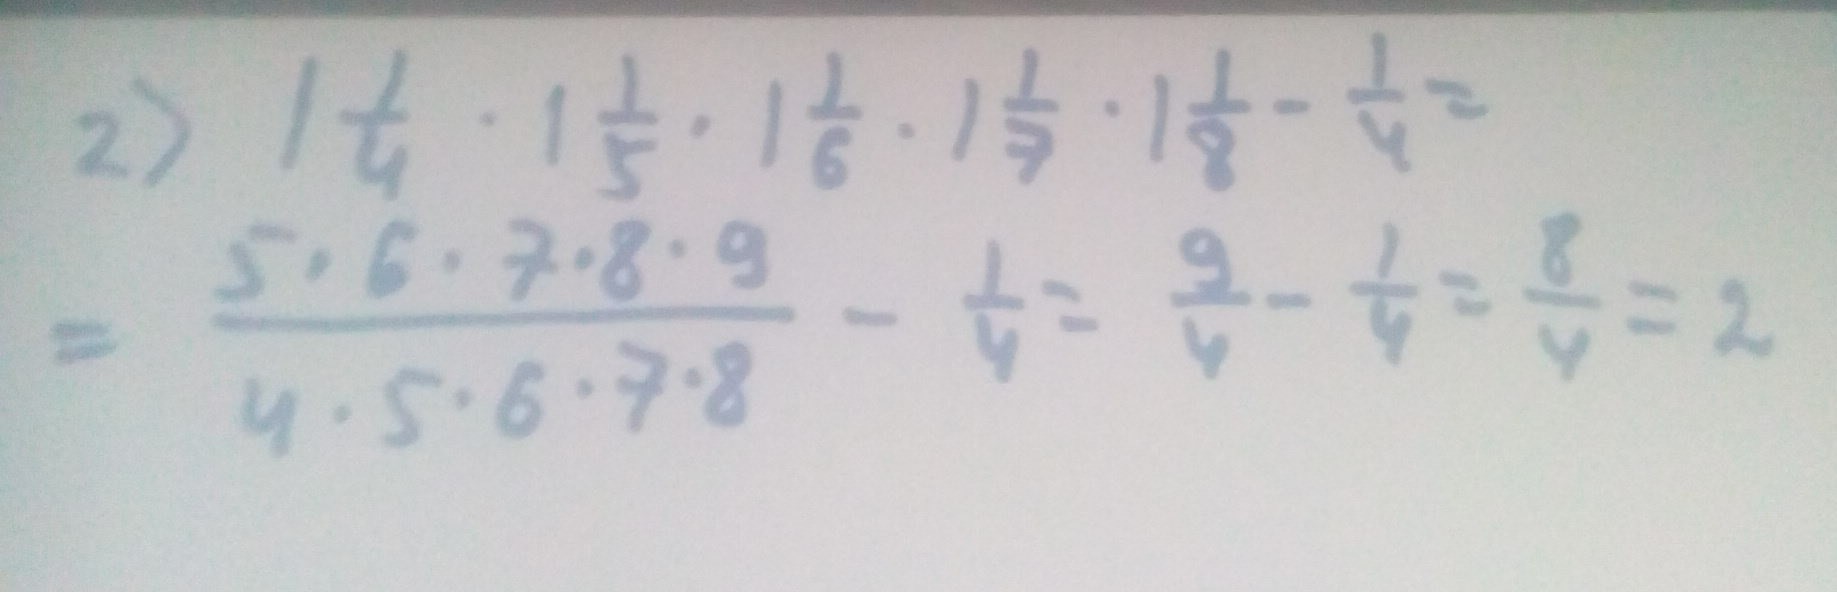 2) 1 1/4 · 1 1/5 · 1 1/6 · 1 1/7 · 1 1/8 - 1/4 =
= (5 · 6 · 7 · 8 · 9)/(4 · 5 · 6 · 7 · 8) - 1/4 = 9/4 - 1/4 = 8/4 = 2